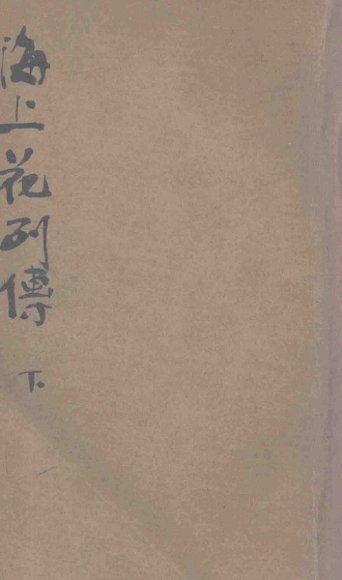 海上花列傳
下